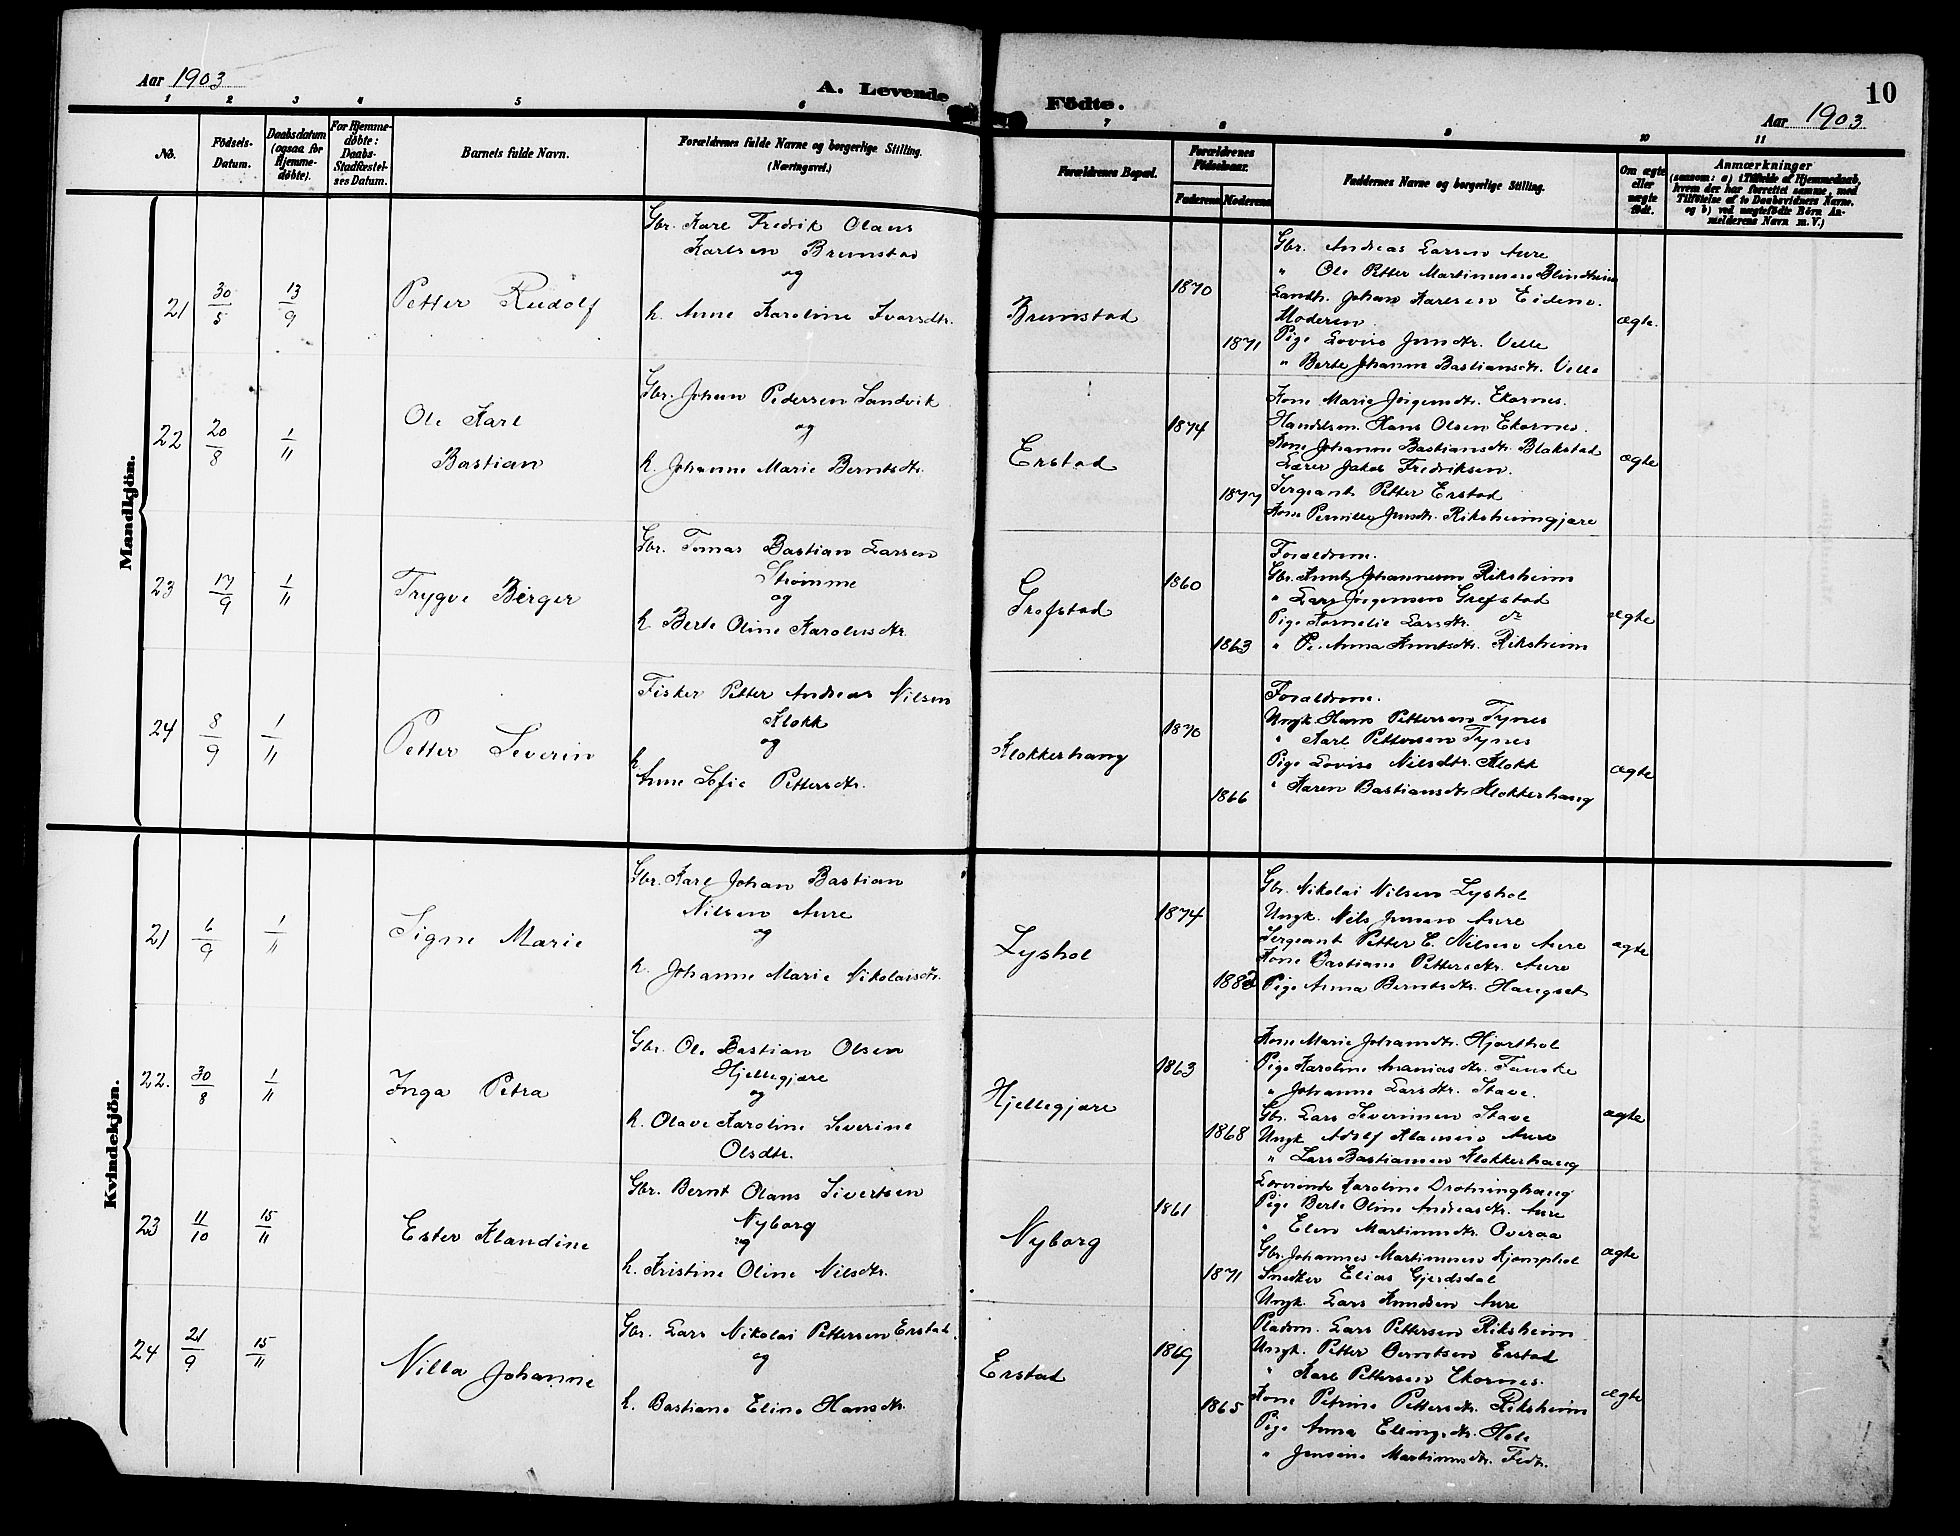 Aar 1903
A. Levende Födte.
10
Aar 1903
1 2 3 4 5 6 7 8 9 10 11
No.
Födsels-
Datum.
Daabsdatum
(ogsaa for
Hjemme-
døbte).
For Hjemme-
døbte:
Daabs-
Stadfæstel-
ses Datum.
Barnets fulde Navn.
Forældrenes fulde Navne og borgerlige Stilling.
(Næringsvei.)
Forældrenes Bopæl.
Forældrenes
Födselsaar.
Faderens
Moderens
Faddernes Navne og borgerlige Stilling.
Om ægte
eller
uægte
født.
Anmærkninger
(saasom: a) i Tilfælde af Hjemmedaab,
hvem der har forrettet samme, med
Tilføielse af to Daabsvidners Navne,
og b) ved uægtefödte Börn An-
melderens Navn m. V.)
Mandkjön.
21
30/5
13/9
Petter Rudolf
Gbr. Karl Fredrik Olaus
Karlsen Brunstad
og
h. Anne Karoline Ivarsdtr.
Brunstad
1870
1871
Gbr. Andreas Larsen Aure
" Ole Petter Martinusen Blindheim
Landh. Johan Karlsen Eidene.
Moderen.
Pige Lovise Jensdtr. Velle
" Berte Johanne Bastiansdtr. Velle
ægte.
22
20/8
1/11
Ole Karl
Bastian
Gbr. Johan Pedersen Sandvik
og
h. Johanne Marie Berntsdtr.
Erstad
1874
1877
Kone Marie Jörgensdtr. Ekornes.
Handelsm. Hans Olsen Ekornes.
Kone Johanne Bastiansdtr. Blakstad
Lærer Jakob Fredriksen.
Sergeant Petter Erstad
Kone Pernille Jensdtr. Riksheimgjære
ægte
23
17/9
1/11
Trygve Birger
Gbr. Tomas Bastian Larsen
Strömme
og
h. Berte Oline Karolusdtr.
Grefstad
1860
1863
Forældrene.
Gbr. Knut Johannesen Riksheim
" Lars Jörgensen Grefstad
Pige Kornelie Larsdtr. do
" P. Anna Knutsdtr. Riksheim
ægte
24
8/9
1/11
Petter Severin
Fisker Petter Andreas Nilsen
Klokk
og
h.
Anne Sofie Pettersdtr.
Klokkerhaug
1870
1866
Forældrene.
Ungk. Hans Pettersen Tynes
" Karl Pettersen Tynes
Pige Lovise Nilsdtr. Klokk
" Karen Bastiansdtr. Klokkerhaug
ægte
Kvindekjön.
21
6/9
1/11
Signe Marie
Gbr. Karl Johan Bastian
Nilsen Aure
og
h. Johanne Marie Nikolaisdtr.
Lyshol
1874
1882
Gbr. Nikolai Nilsen Lyshol
Ungk. Nils Jensen Aure
Sergeant Petter E. Nilsen Aure
Kone Bastiane Pettersdtr. Aure
Pige Anna Berntsdtr. Haugset
ægte
22.
30/8
1/11
Inga Petra
Gbr. Ole Bastian Olsen
Hjellegjære
og
h. Olave Karoline Severine
Olsdtr.
Hjellegjære
1863
1868
Kone Marie Johansdtr. Hjorthol
Pige Karoline Ananiasdtr. Fauske
" Johanne Larsdtr. Stave.
Gbr. Lars Severinsen Stave
Ungk Adolf Klausen Aure
" Lars Bastiansen Klokkerhaug
ægte
23
11/10
15/11
Ester Klandine
Gbr. Bernt Olaus Sivertsen
Nyborg
og
h. Kristine Oline Nilsdtr.
Nyborg
1861
1871
Lærerinde Karoline Drotninghaug
Pige Berte Oline Andreasdtr. Aure
" Elen Martinusdtr. Overaa
Gbr. Johannes Martinusen Kjemphol
Snedker Elias Gjerdsdal
Ungk. Lars Knudsen Aure
ægte
24
21/9
15/11
Nilla Johanne
Gbr. Lars Nikolai Pettersen Erstad
og
h. Bastiane Eline Hansdtr.
Erstad
1869
1865
Pladsm. Lars Pettersen Riksheim
Ungk. Petter Berntsen Erstad
" Karl Pettersen Ekornes.
Kone Petrine Pettersdtr. Riksheim
Pige Anna Ellingsdtr. Hole
" Jensine Martinusdtr. Fedt.
ægte